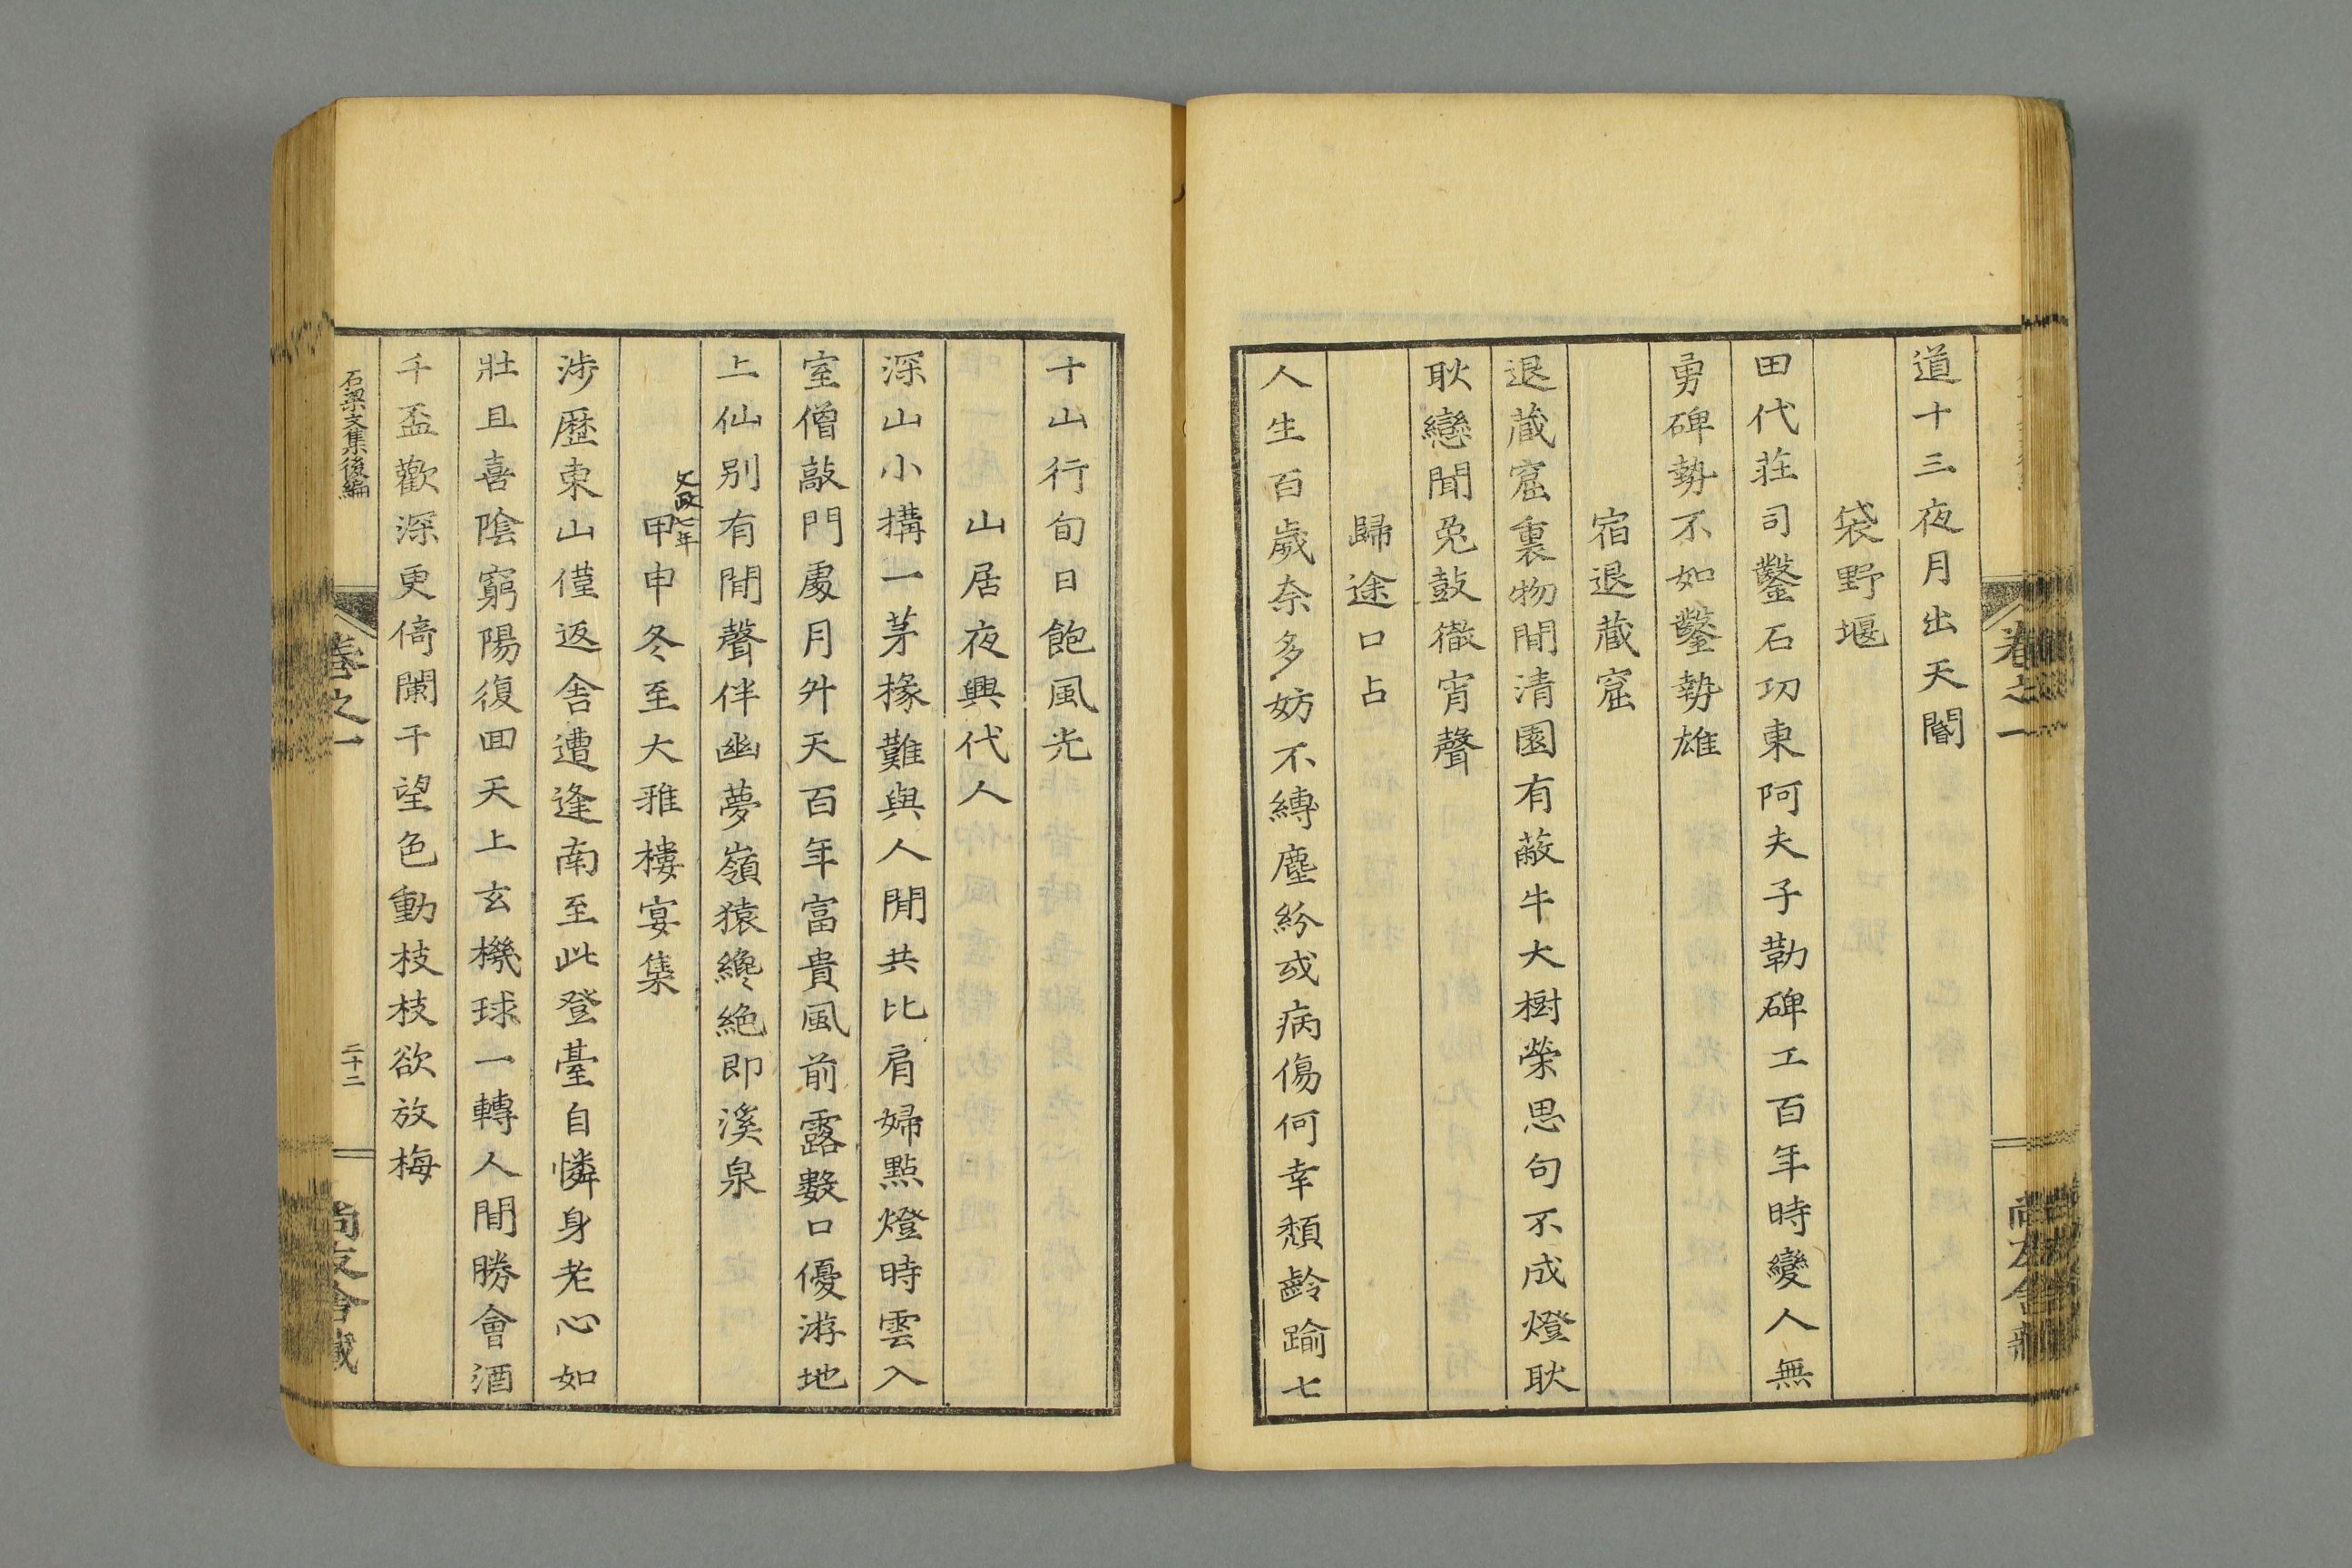 道十三夜月出天閽
袋野堰
田代莊司鑿石功東阿夫子勒碑工百年時變人無
勇碑勢不如鑿勢雄
宿退藏窟
退藏窟裏物閒清園有蔽牛大樹榮思句不成燈耿
耿戀聞兎鼓徹宵聲
歸途口占
人生百歲奈多妨不縛塵紛或病傷何幸頽齡踰七
十山行旬日飽風光
山居夜興代人
深山小搆一茅椽難與人閒共比肩婦點燈時雲入
室僧敲門處月升天百年富貴風前露數口優游地
上仙別有閒聲伴幽夢嶺猿纔絕即溪泉
文政七年
甲申冬至大雅樓宴集
涉歷東山僅返舍遭逢南至此登臺自憐身老心如
壯且喜陰窮陽復囬天上玄機球一轉人閒勝會酒
千盃歡深更倚闌干望色動枝枝欲放梅
石梁文集後編
卷之一
二十二
尚友舍藏